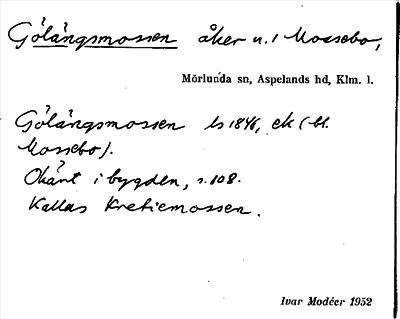 Gölängsmossen åker n. i Mossebo,
Mörlunda sn, Aspelands hd, Klm. l.
Gölängsmossen ls 1846, ek (bl.
Mossebo).
Okänt i bygden, s. 108.
Kallas Kretiemossen.
Ivar Modéer 1952